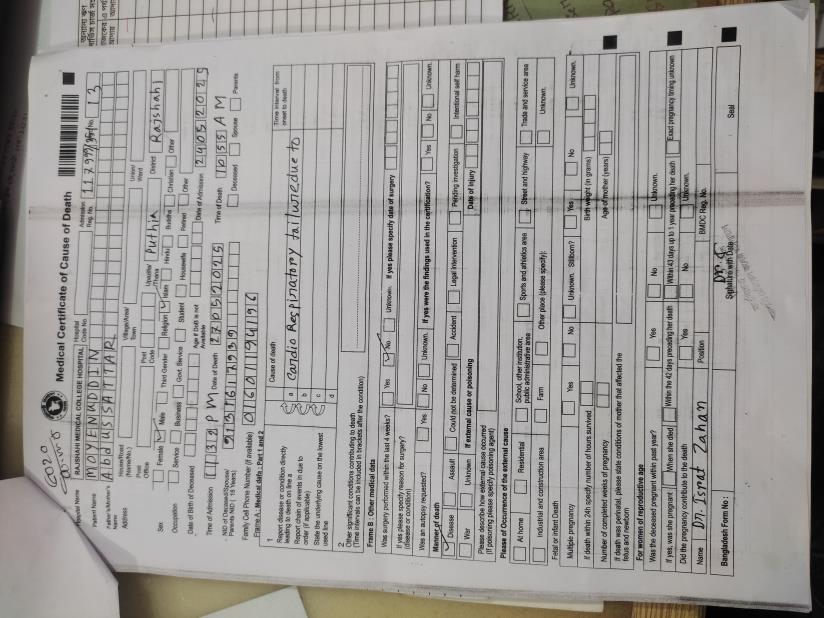 Medical Certificate of Cause of Death
Hospital Name RAJSHAHI MEDICAL COLLEGE HOSPITAL Hospital Code No. Admission Reg. No.
Patient Name MOYENUDDIN
Father's/Mother's Name Abdus SATTAR
Address House/Road (Name/No.) Village/Area/ Town Union/ Ward
Post Office Post Code Upazila/ Thana Puthia District Rajshahi
Sex Female Male Third Gender Religion Islam Hindu Buddha Christian Other
Occupation Service Business Govt. Service Student Housewife Retired Other
Date of Birth of Deceased Age if DoB is not Available Date of Admission 24052025
Time of Admission PM Date of Death 27052025 Time of Death 1055AM
NID of Deceased/Spouse/ Parents NID(< 18 Years) Deceased Spouse Parents
Family Cell Phone Number (if available)
Frame A : Medical data : Part 1 and 2
1 Cause of death Time interval from onset to death
Report disease or condition directly leading to death on line a a Cardio Respiratory failure due to
Report chain of events in due to order (if applicable) b
State the underlying cause on the lowest used line c
d
2 Other significant conditions contributing to death
(Time intervals can be included in brackets after the condition)
Frame B : Other medical data
Was surgery performed within the last 4 weeks? Yes No Unknown. If yes please specify date of surgery
If yes please specify reason for surgery?
(disease or condition)
Was an autopsy requested? Yes No Unknown. If yes were the findings used in the certification? Yes No Unknown.
Manner of death
Disease Assault Could not be determined Accident Legal intervention Pending investigation Intentional self harm
War Unknown If external cause or poisoning Date of injury
Please describe how external cause occurred
(If poisoning please specify poisoning agent)
Please of Occurrence of the external cause
At home Residential School, other institution, public administrative area Sports and athletics area Street and highway Trade and service area
Industrial and construction area Farm Other place (please specify): Unknown.
Fetal or infant Death
Multiple pregnancy Yes No Unknown. Stillborn? Yes No Unknown.
If death within 24h specify number of hours survived Birth weight (in grams)
Number of completed weeks of pregnancy Age of mother (years)
If death was perinatal, please state conditions of mother that affected the
fetus and newborn
For women of reproductive age
Was the deceased pregnant within past year? Yes No Unknown.
If yes, was she pregnant When she died Within the 42 days preceding her death Within 43 days up to 1 year preceding her death Exact pregnancy timing unknown
Did the pregnancy contribute to the death Yes No Unknown.
Name Dr. Ispat Zahan Position BMDC Reg. No.
Signature with Date
Bangladesh Form No : Seal